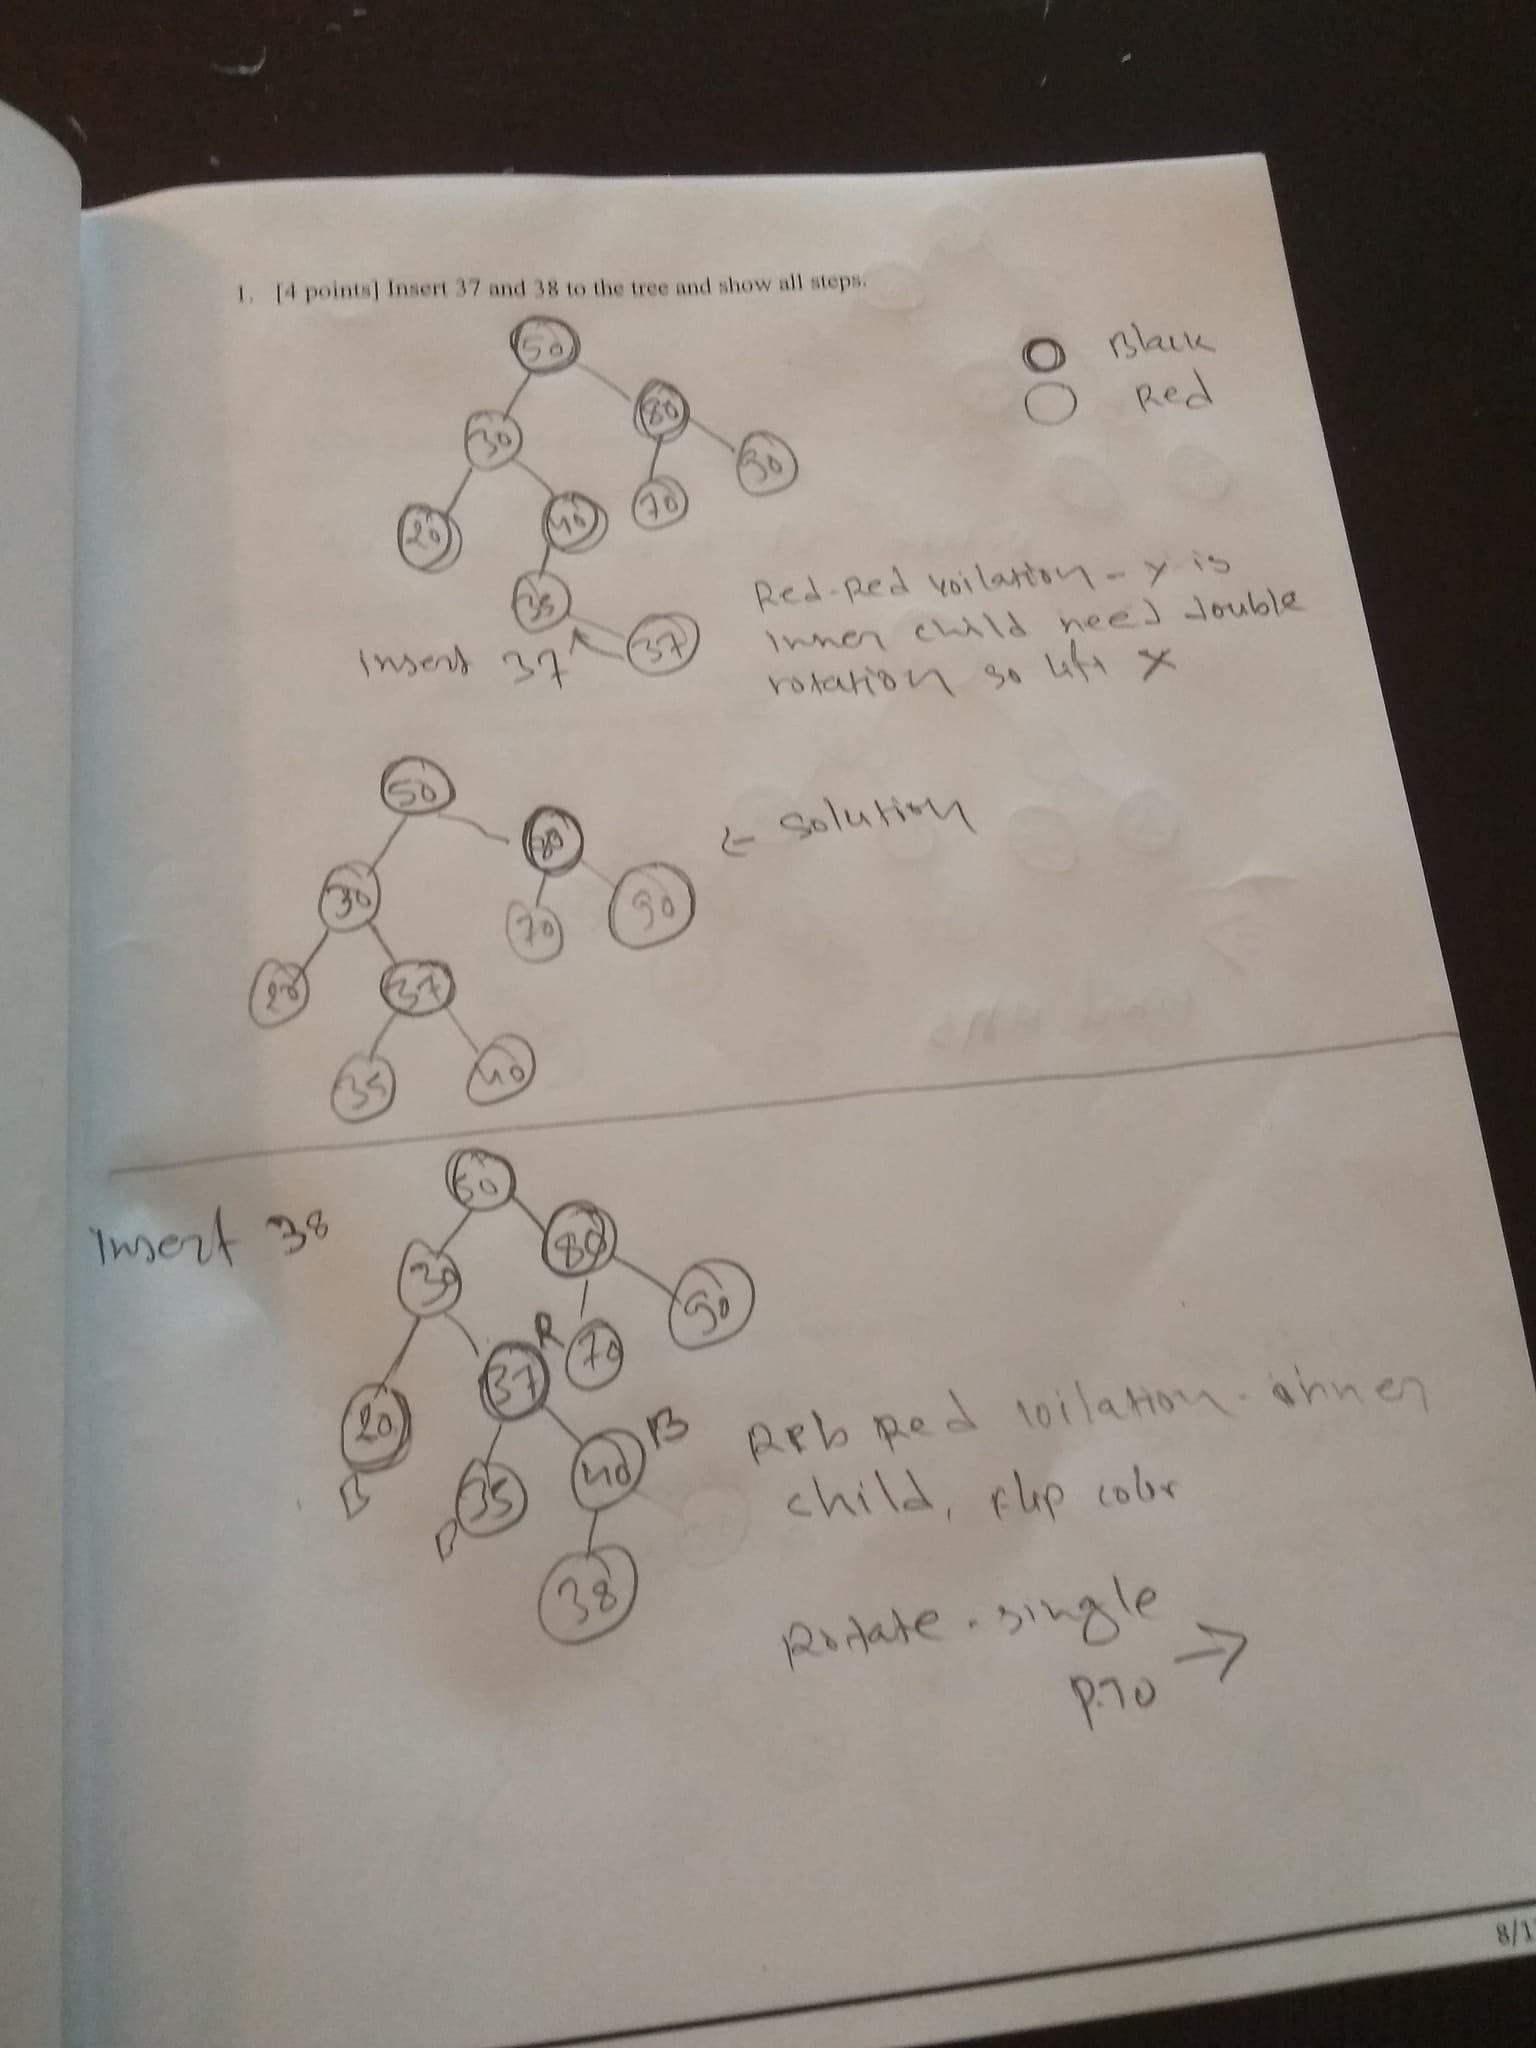 1. [4 points] Insert 37 and 38 to the tree and show all steps.
50
Black
80
Red
30
90
20
40
70
35
37
Insert 37
Red-Red voilation - y is
inner child need double
rotation so lift x
50
80
← solution
30
70
90
20
37
35
40
Insert 38
50
80
30
90
R
70
37
20
B
40
B
35
38
Red voilation - inner
child, flip color
Rotate - single
P.TO →
8/1